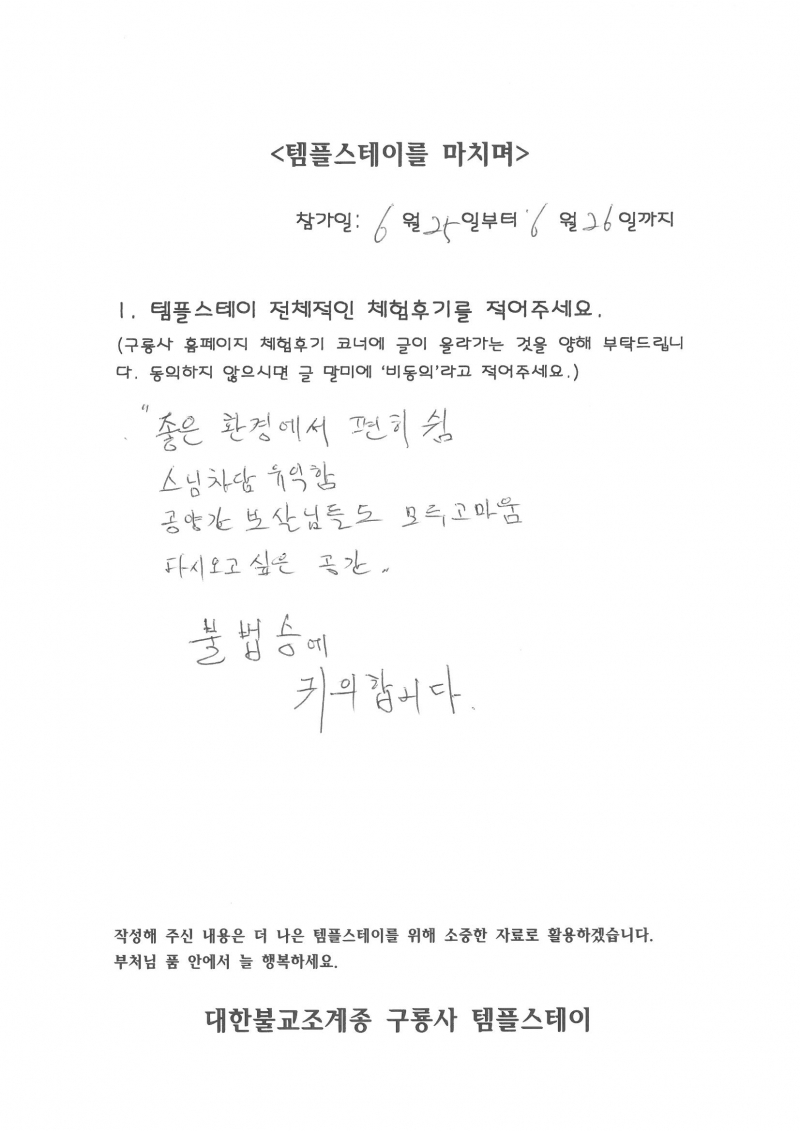 <템플스테이를 마치며>
참가일: 6 월 25일부터 6 월 26일까지
1. 템플스테이 전체적인 체험후기를 적어주세요.
(구룡사 홈페이지 체험후기 코너에 글이 올라가는 것을 양해 부탁드립니
다. 동의하지 않으시면 글 말미에 '비동의'라고 적어주세요.)
"좋은 환경에서 편히 쉼
스님차담 유익함
공양간 보살님들도 모두 고마움
다시오고 싶은 공간"
불법승에
귀의합니다.
작성해 주신 내용은 더 나은 템플스테이를 위해 소중한 자료로 활용하겠습니다.
부처님 품 안에서 늘 행복하세요.
대한불교조계종 구룡사 템플스테이